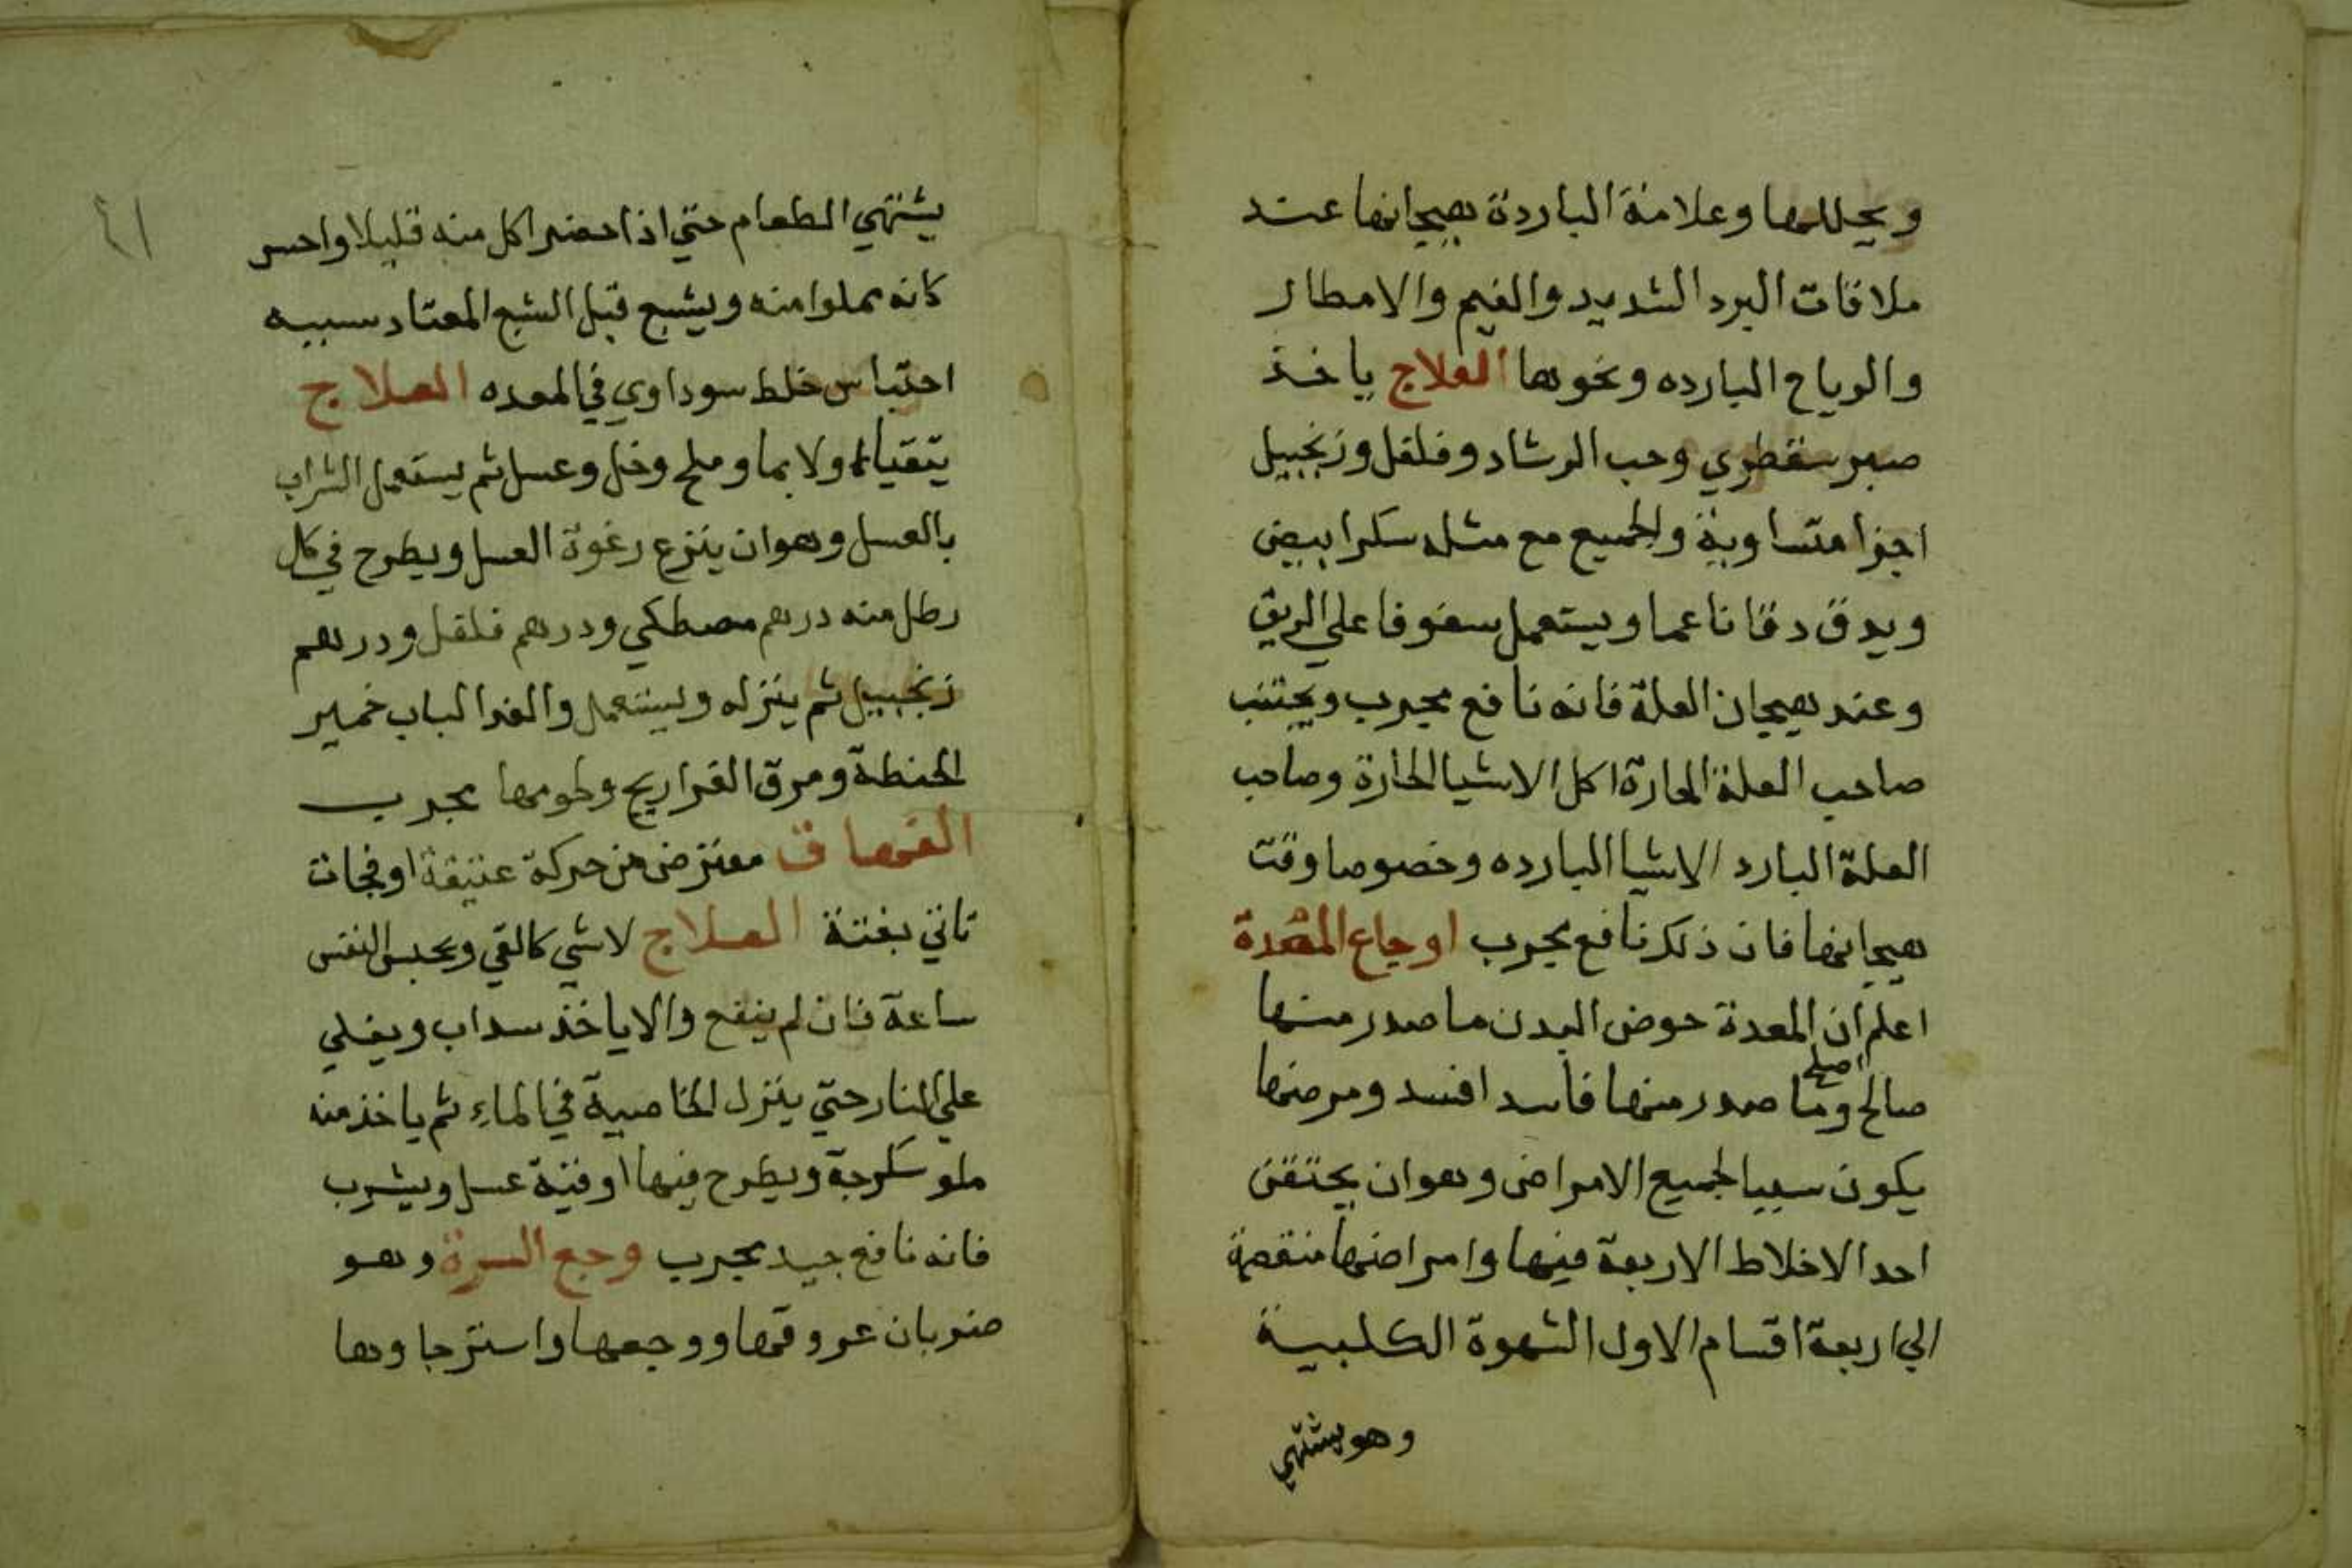 ويحللها وعلامة الباردة هيجانها عند
ملاقات البرد الشديد والغيم والامطار
والرياح البارده ونحوها العلاج ياخذ
صبر سقطري وحب الرشاد وفلفل وزنجبيل
اجزا متساوية والجميع مع مثله سكر ابيض
ويدق دقا ناعما ويستعمل سفوفا علي الريق
وعند هيجان العلة فانه نافع مجرب ويجتنب
صاحب العلة الحارة اكل الاشيا الحارة وصاحب
العلة البارد الاشيا البارده وخصوصا وقت
هيجانها فان ذلك نافع مجرب اوجاع المعدة
اعلم ان المعدة حوض البدن ما صدر منها
اصلح
صالح وما صدر منها فاسد افسد ومرضها
يكون سببا لجميع الامراض وهو ان يحتقن
احد الاخلاط الاربعة فيها وامراضها منقصمة
الي اربعة اقسام الاول الشهوة الكلبية
وهو يشتهي
٤١
يشتهي الطعام حتي اذا حضر اكل منه قليلا واحس
كانه مملوا منه ويشبع قبل الشبع المعتاد سببه
احتباس خلط سوداوي في المعده العلاج
يتقيا اولا بما وملح وخل وعسل ثم يستعمل الشراب
بالعسل وهو ان ينزع رغوة العسل ويطرح في كل
رطل منه درهم مصطكي ودرهم فلفل ودرهم
زنجبيل ثم ينزله ويستعمل والغدا لباب خمير
الحنطة ومرق الفراريج ولحومها مجرب
معترض من حركة عنيقة او فجات
تاتي بغتة العلاج لاشي كالقي ويحبس النفس
ساعة فان لم ينفع والا ياخذ سداب ويغلي
علي النار حتي ينزل الخاصية في الماء ثم ياخذ منه
ملو سكرجة ويطرح فيها اوقية عسل ويشرب
فانه نافع جيد مجرب وجع السرة وهو
ضربان عروقها ووجعها واسترجاوها